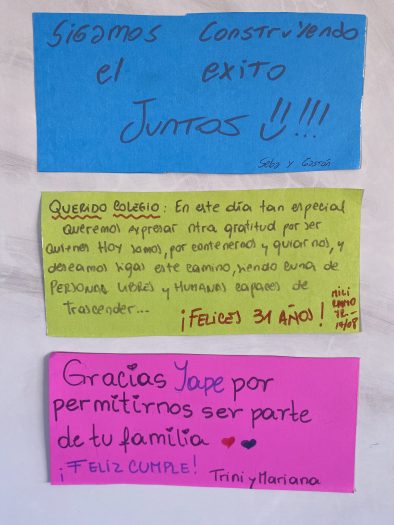 Sigamos Construyendo
el exito
JUNTOS !!!!!
Seba y Gastón
QUERIDO COLEGIO: En este día tan especial
queremos expresar ntra gratitud por ser
quienes HOY somos, por contenernos y guiarnos, y
deseamos sigas este camino, siendo cuna de
PERSONAS LIBRES y HUMANAS capaces de
Trascender...
¡FELICES 31 AÑOS!
MILI
19/08
Gracias Yape por
permitirnos ser parte
de tu familia
¡FELIZ CUMPLE!
Trini y Mariana